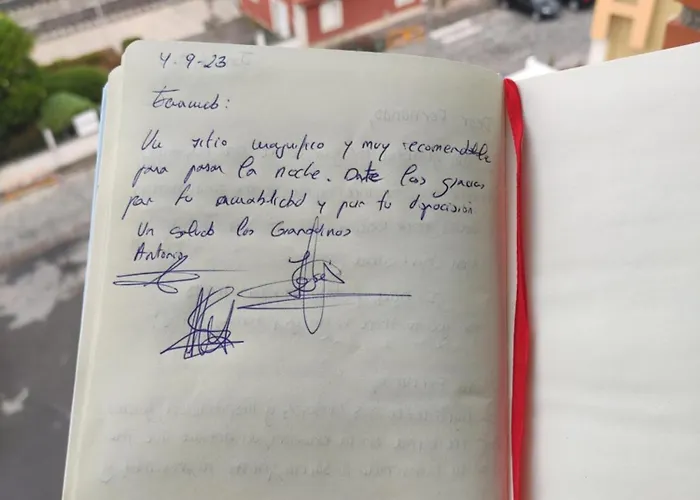 4-9-23
Un sitio magnifico y muy recomendable
para pasar la noche. Darte las gracias
por tu amabilidad y por tu disposición
Un saludo los Grandinos
Antonio
José